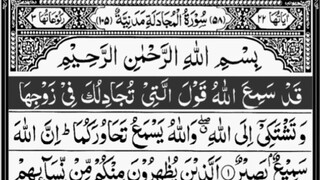 اٰيَاتُهَا ٢٢ (٥٨) سُوْرَةُ الْمُجَادَلَةِ مَدَنِيَّةٌ (١٠٥) رُكُوْعَاتُهَا ٣
بِسْمِ اللّٰهِ الرَّحْمٰنِ الرَّحِيْمِ
قَدْ سَمِعَ اللّٰهُ قَوْلَ الَّتِيْ تُجَادِلُكَ فِيْ زَوْجِهَا
وَتَشْتَكِيْٓ اِلَى اللّٰهِ ۖ وَاللّٰهُ يَسْمَعُ تَحَاوُرَكُمَا ؕ اِنَّ اللّٰهَ
سَمِيْعٌۢ بَصِيْرٌ ۝١ اَلَّذِيْنَ يُظٰهِرُوْنَ مِنْكُمْ مِّنْ نِّسَآىِٕهِمْ